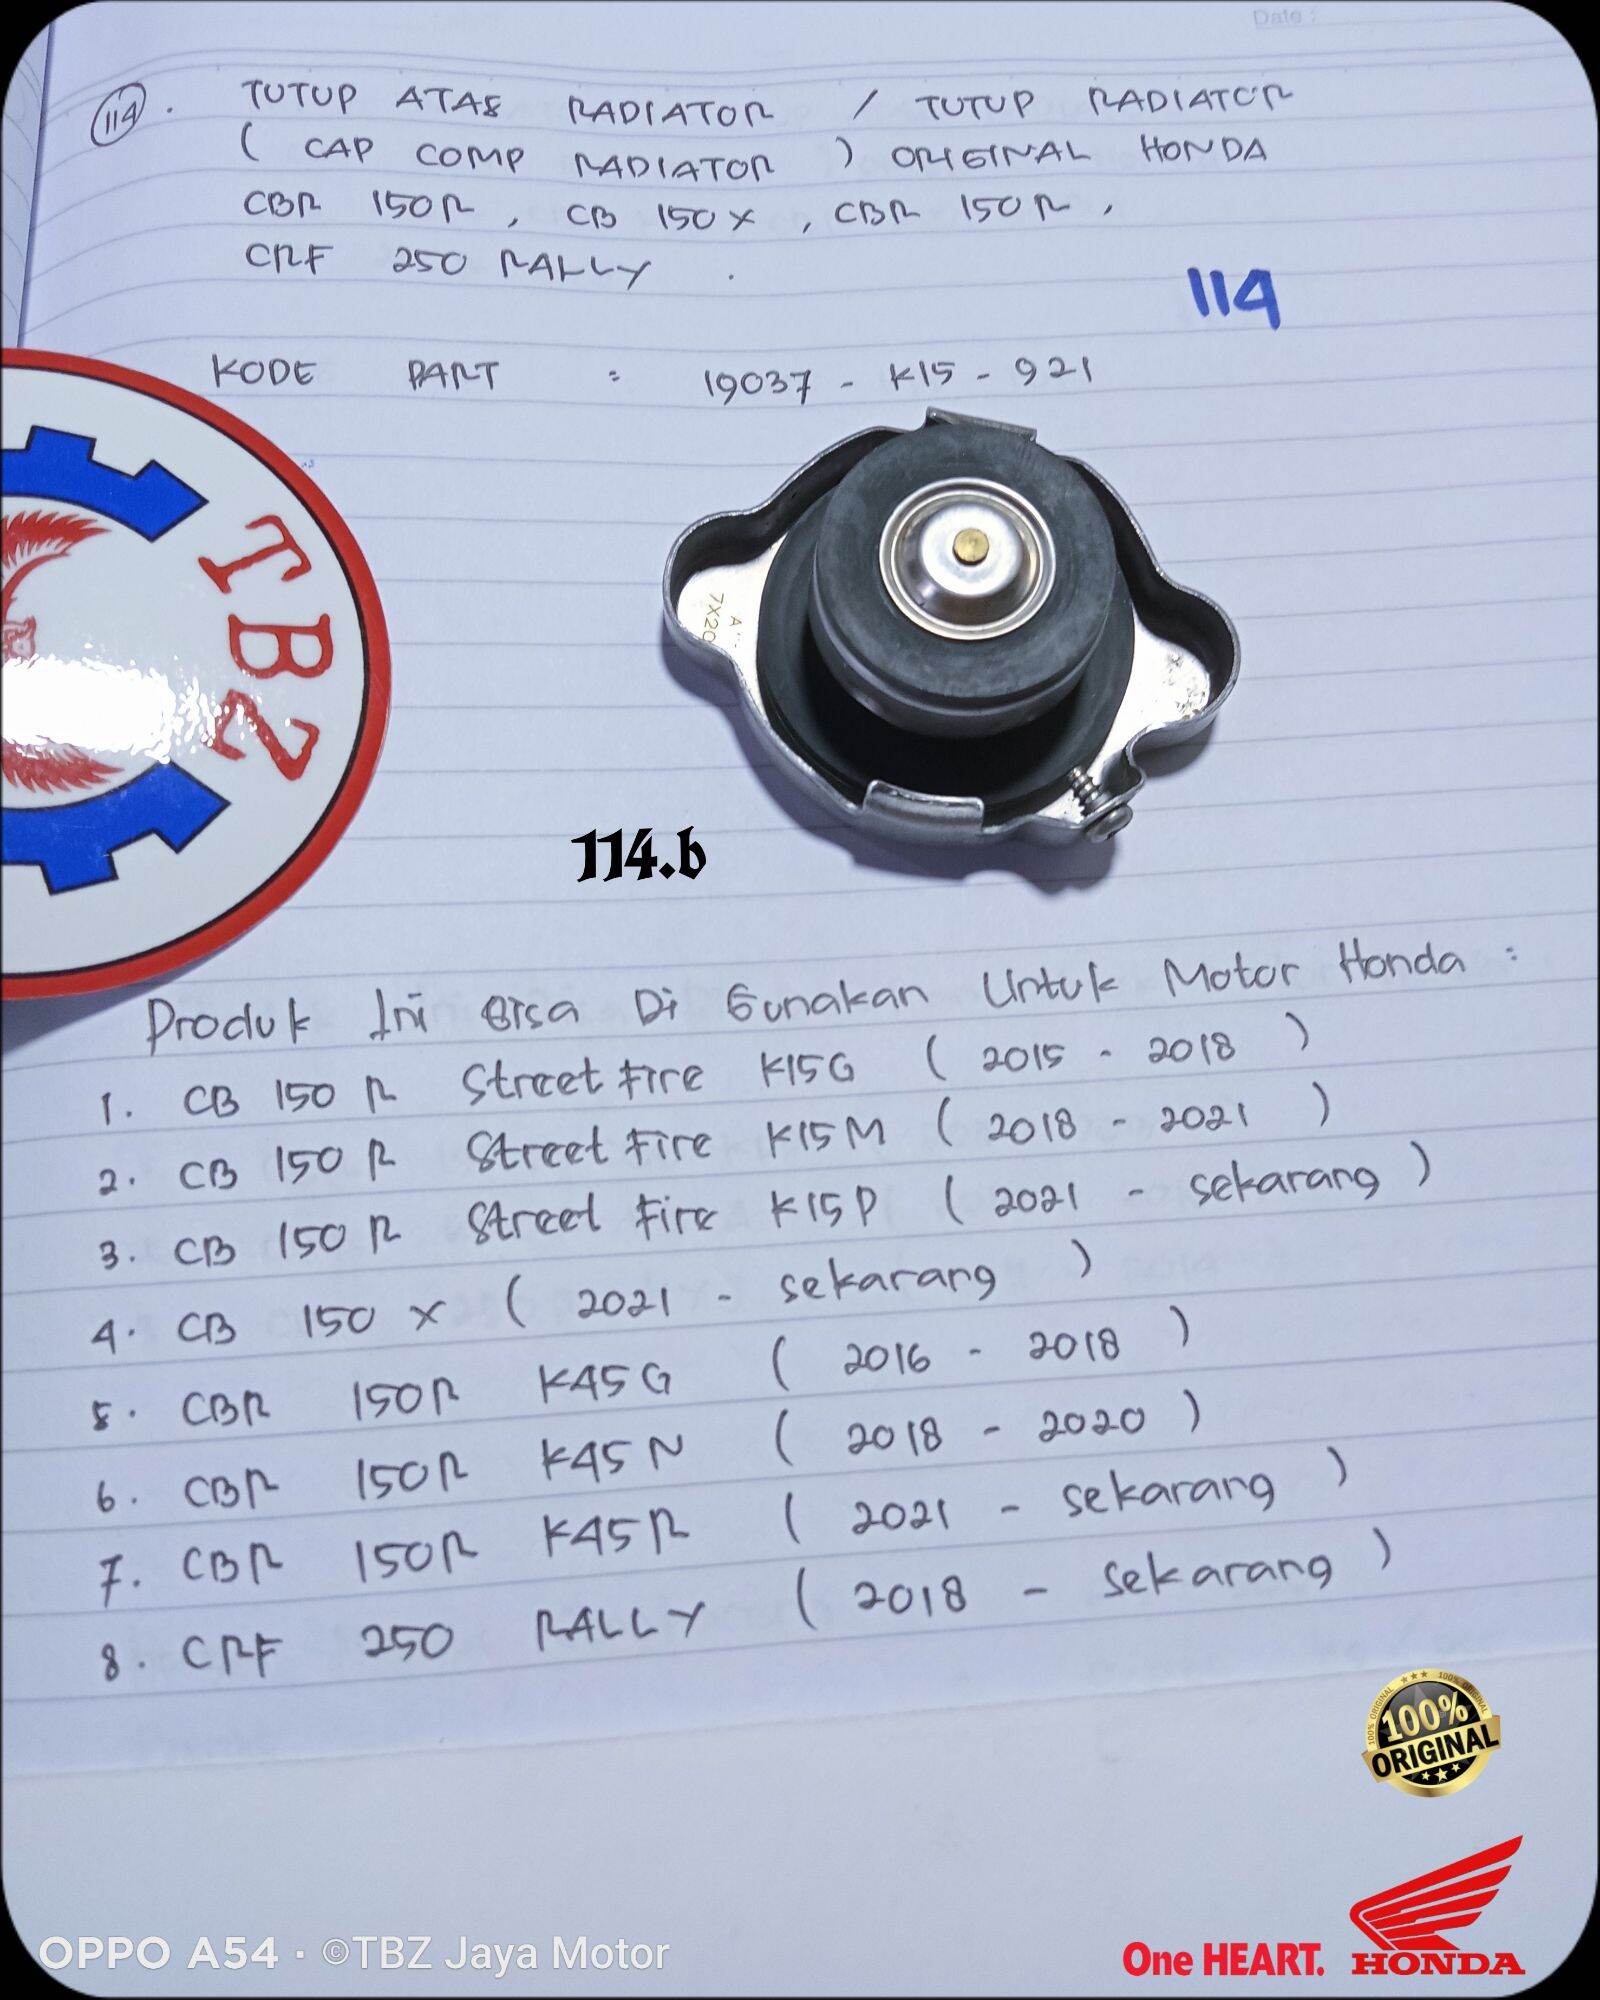 Date :
114. TUTUP ATAS RADIATOR / TUTUP RADIATOR
( CAP COMP RADIATOR ) ORIGINAL HONDA
CBR 150R , CB 150 X , CBR 150 R ,
CRF 250 RALLY .
114
KODE PART : 19037 - K15 - 921
TBZ
7X20
114.b
Produk Ini Bisa Di Gunakan Untuk Motor Honda :
1. CB 150 R Street Fire K15G ( 2015 - 2018 )
2. CB 150 R Street Fire K15M ( 2018 - 2021 )
3. CB 150 R Street Fire K15P ( 2021 - sekarang )
4. CB 150 X ( 2021 - sekarang )
5. CBR 150R K45G ( 2016 - 2018 )
6. CBR 150R K45N ( 2018 - 2020 )
7. CBR 150R K45R ( 2021 - sekarang )
8. CRF 250 RALLY ( 2018 - sekarang )
100% ORIGINAL
100%
ORIGINAL
OPPO A54 · ©TBZ Jaya Motor
One HEART.
HONDA